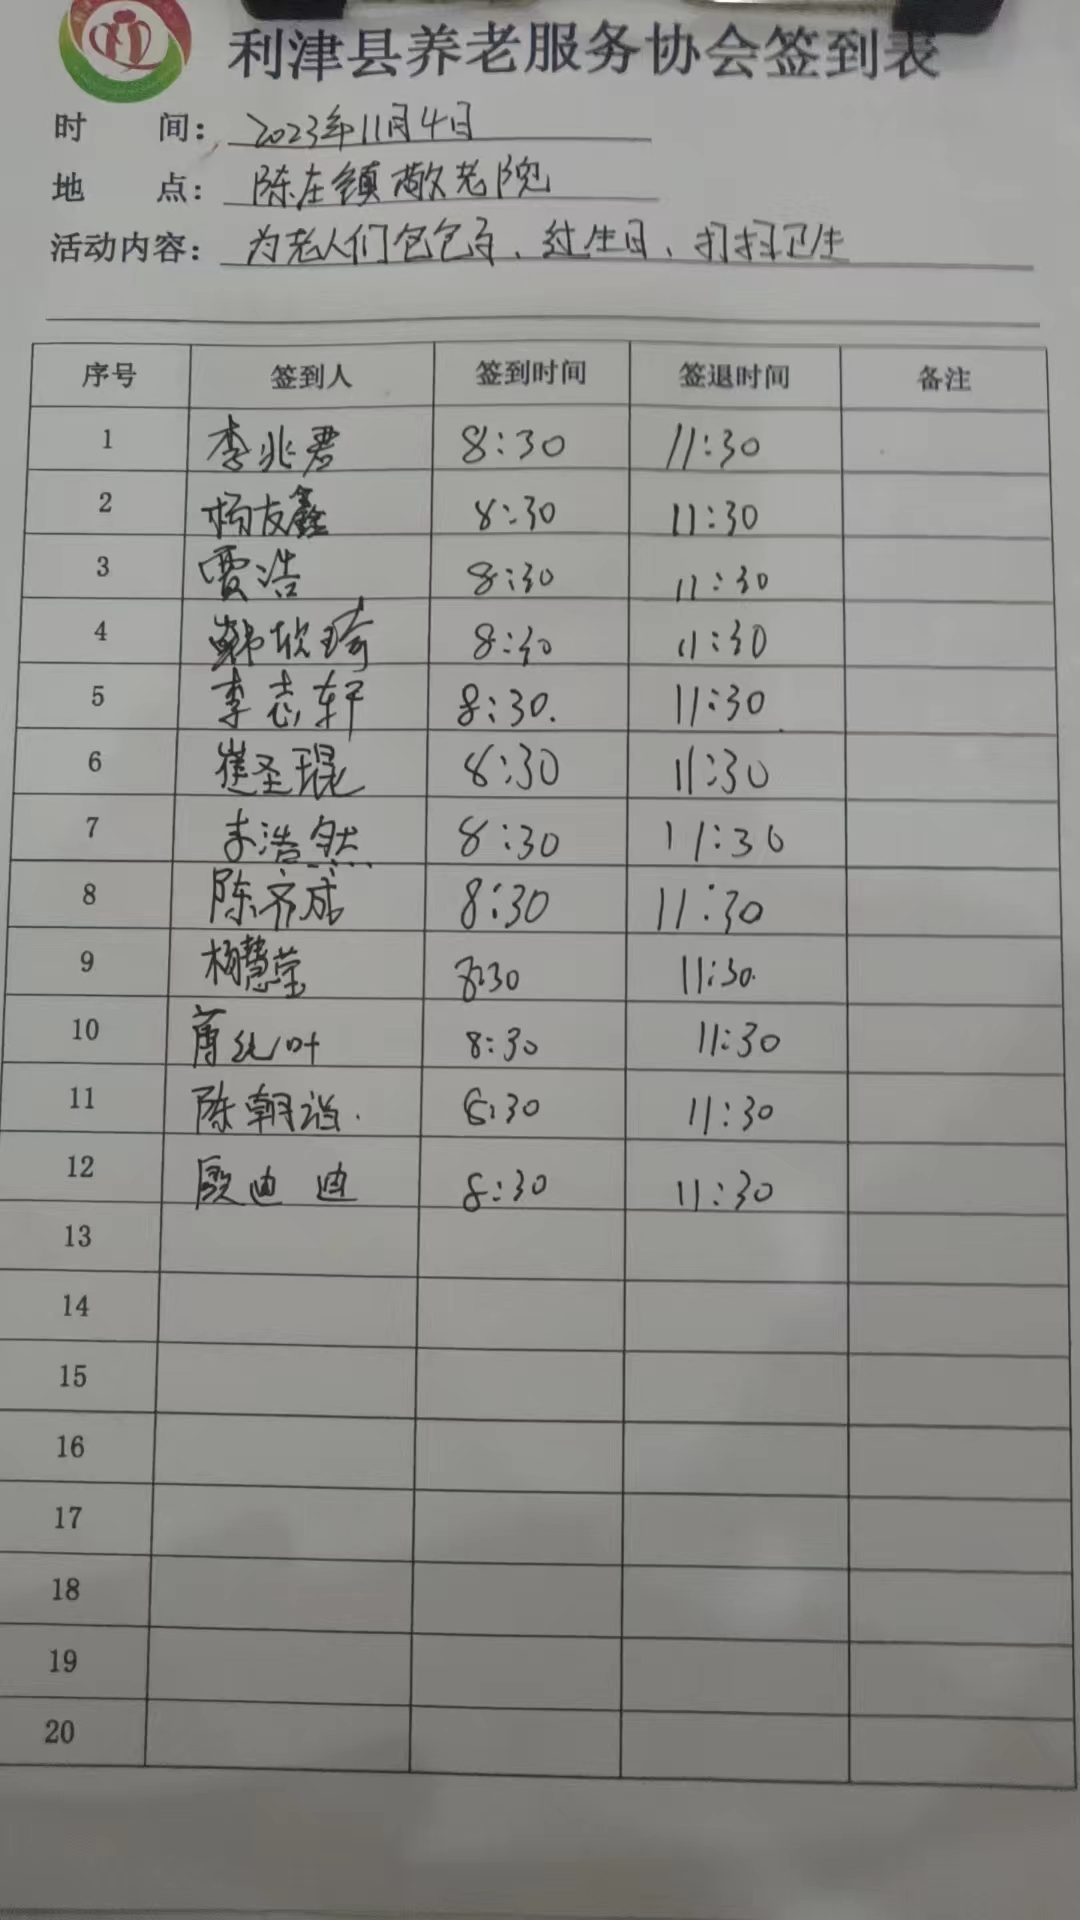 利津县养老服务协会签到表
时 间: 2023年11月4日
地 点: 陈庄镇敬老院
活动内容: 为老人们包包子、过生日、打扫卫生
序号 签到人 签到时间 签退时间 备注
1 李兆君 8:30 11:30
2 杨友鑫 8:30 11:30
3 贾浩 8:30 11:30
4 韩欣琦 8:30 11:30
5 李志轩 8:30. 11:30
6 崔圣琨 8:30 11:30
7 李浩然 8:30 11:30
8 陈齐成 8:30 11:30
9 杨慧莹 8:30 11:30.
10 8:30 11:30
11 陈朝 8:30 11:30
12 殷迪迪 8:30 11:30
13
14
15
16
17
18
19
20